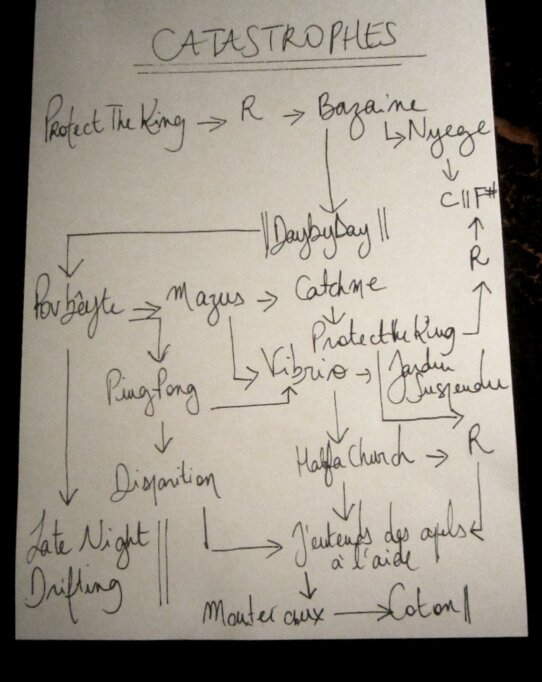 CATASTROPHES
Protect The King → R → Bazaine
↳ Nyege
↓
C||F#
↑
||DaybyDay||
R
Catchme
Mazus →
↓
Protect the King
Vibrio → Jardin
Suspendu
Ping-Pong
Church → R
Disparition
J'entends des
à l'aide
Late Night ||
Drifting
→ Coton||